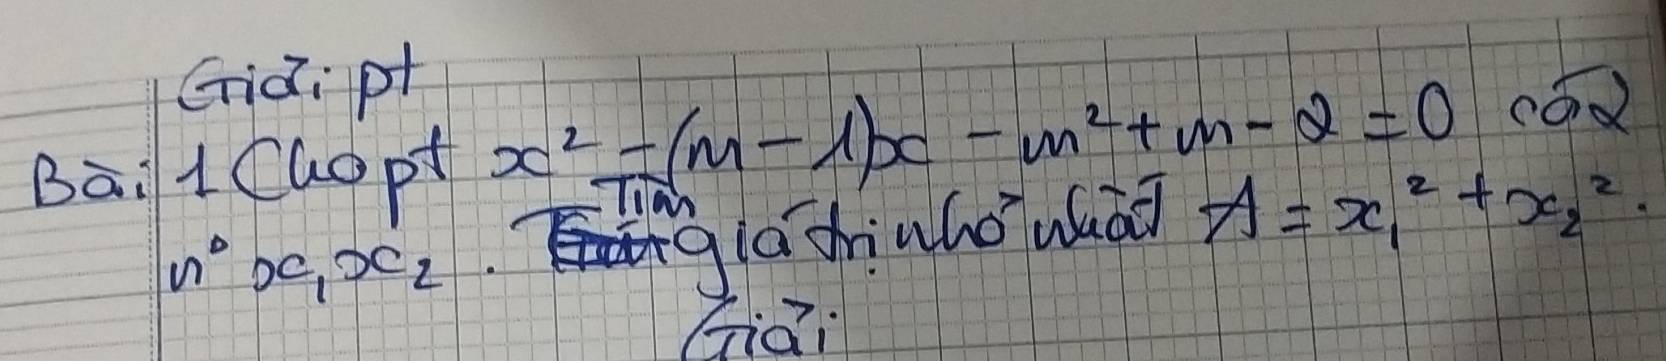 Giải pt
Bài 1 Cho pt x² - (m - 1)x - m² + m - 2 = 0 có 2
n° x₁, x₂. Tìm giá trị nhỏ nhất A = x₁² + x₂².
Giải